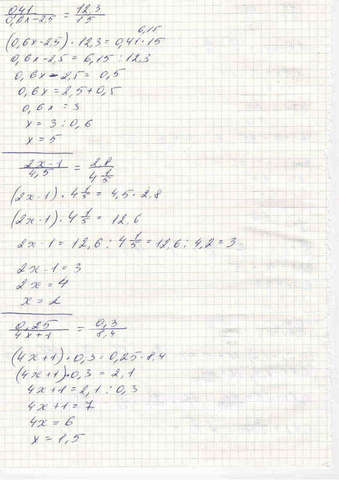 0,41 / 0,6x-2,5 = 12,3 / 15
6,15
(0,6x-2,5)·12,3=0,41·15
0,6x-2,5=6,15:12,3
0,6x-2,5=0,5
0,6x=2,5+0,5
0,6x=3
x=3:0,6
x=5
2x-1 / 4,5 = 2,8 / 4 1/5
(2x-1)·4 1/5=4,5·2,8
(2x-1)·4 1/5=12,6
2x-1=12,6:4 1/5=12,6:4,2=3
2x-1=3
2x=4
x=2
0,25 / 4x+1 = 0,3 / 8,4
(4x+1)·0,3=0,25·8,4
(4x+1)·0,3=2,1
4x+1=2,1:0,3
4x+1=7
4x=6
x=1,5